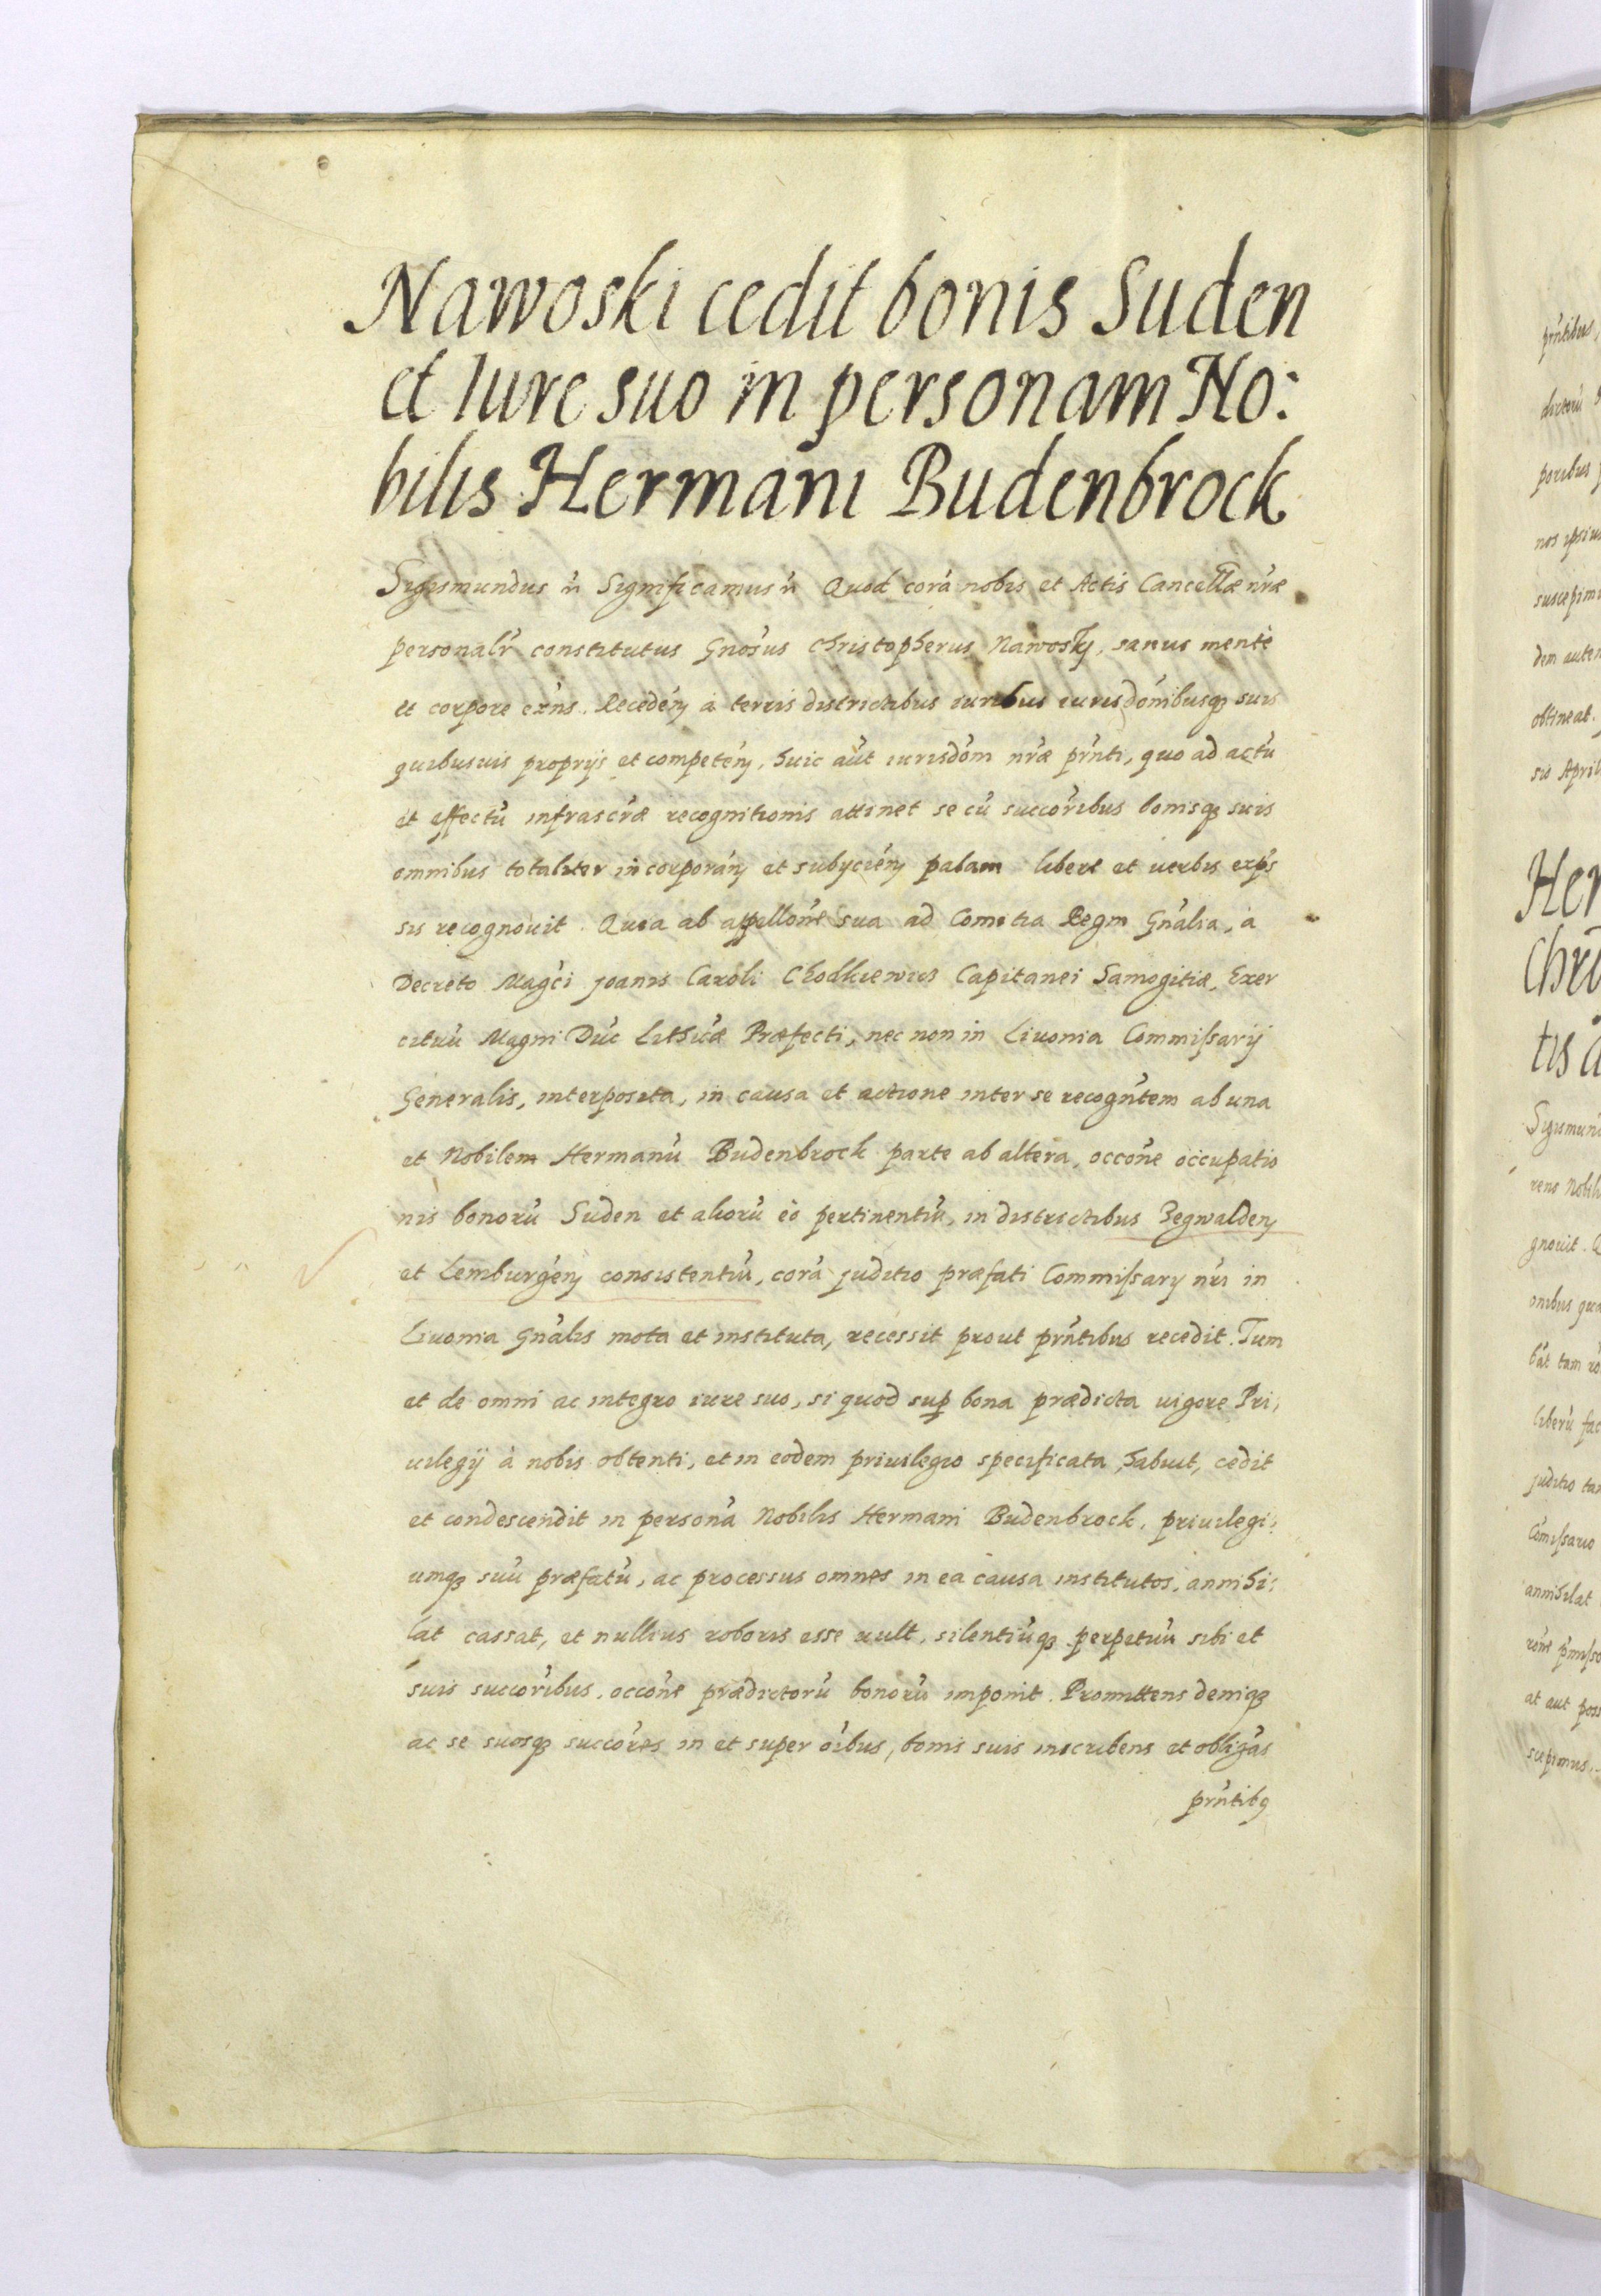 Nawoski cedit bonis Suden
et Iure suo in personam No:
bilis Hermani Budenbrock
Sigismundus ꝛc̃ Significamus ꝛc̃ Quod corã nobis et Actis Cancellæ nr̃æ
personalr̃ constitutus Gnõsus Christopherus Nawosky, sanus mente
et corpore exñs. Recedeñ à terris districtibus iuribus iurisdõnibusqꝫ suis
quibusuis proprijs et competeñ, huic aũt iurisdõni nr̃æ pr̃nti, quo ad actũ
et effectũ infrascr̃æ recognitionis attinet se cũ succõribus bonisqꝫ suis
omnibus totaliter incorporañ et subijcieñ palam libere et uerbis exp̃s
sis recognouit. Quia ab appellõne sua ad Comitia Regni Gnãlia, a
Decreto Magci Joanis Caroli Chodkiewics Capitanei Samogitiæ, Exer
cituũ Magni Duc̃ Lithuæ Præfecti, nec non in Liuonia Commissarij
Generalis, interposita, in causa et actione inter se recogñtem ab una
et Nobilem Hermanũ Budenbrock parte ab altera, occõne occupatio
nis bonorũ Suden et aliorũ eò pertinentiũ, in districtibus Zegwaldeñ
et Lemburgeñ consistentiũ, corã juditio præfati Commissary nr̃i in
Liuonia Gnãlis mota et instituta, recessit prout pr̃ntibus recedit. Tum
et de omni ac integro iure suo, si quod suꝑ bona prædicta uigore Pri,
uilegij à nobis obtenti, et in eodem priuilegio specificata habuit, cedit
et condescendit in personã Nobilis Hermani Budenbrock, priuilegi:
umqꝫ suũ præfatũ, ac processus omnes in ea causa institutos, annihi:
lat cassat, et nullius roboris esse uult, silentiũqꝫ perpetuũ sibi et
suis succõribus, occõne prædictorũ bonorũ imponit. Promittens deniqꝫ
ac se suosqꝫ succõres in et super oĩbus, bonis suis inscribens et obligãs
pr̃ntibꝰ